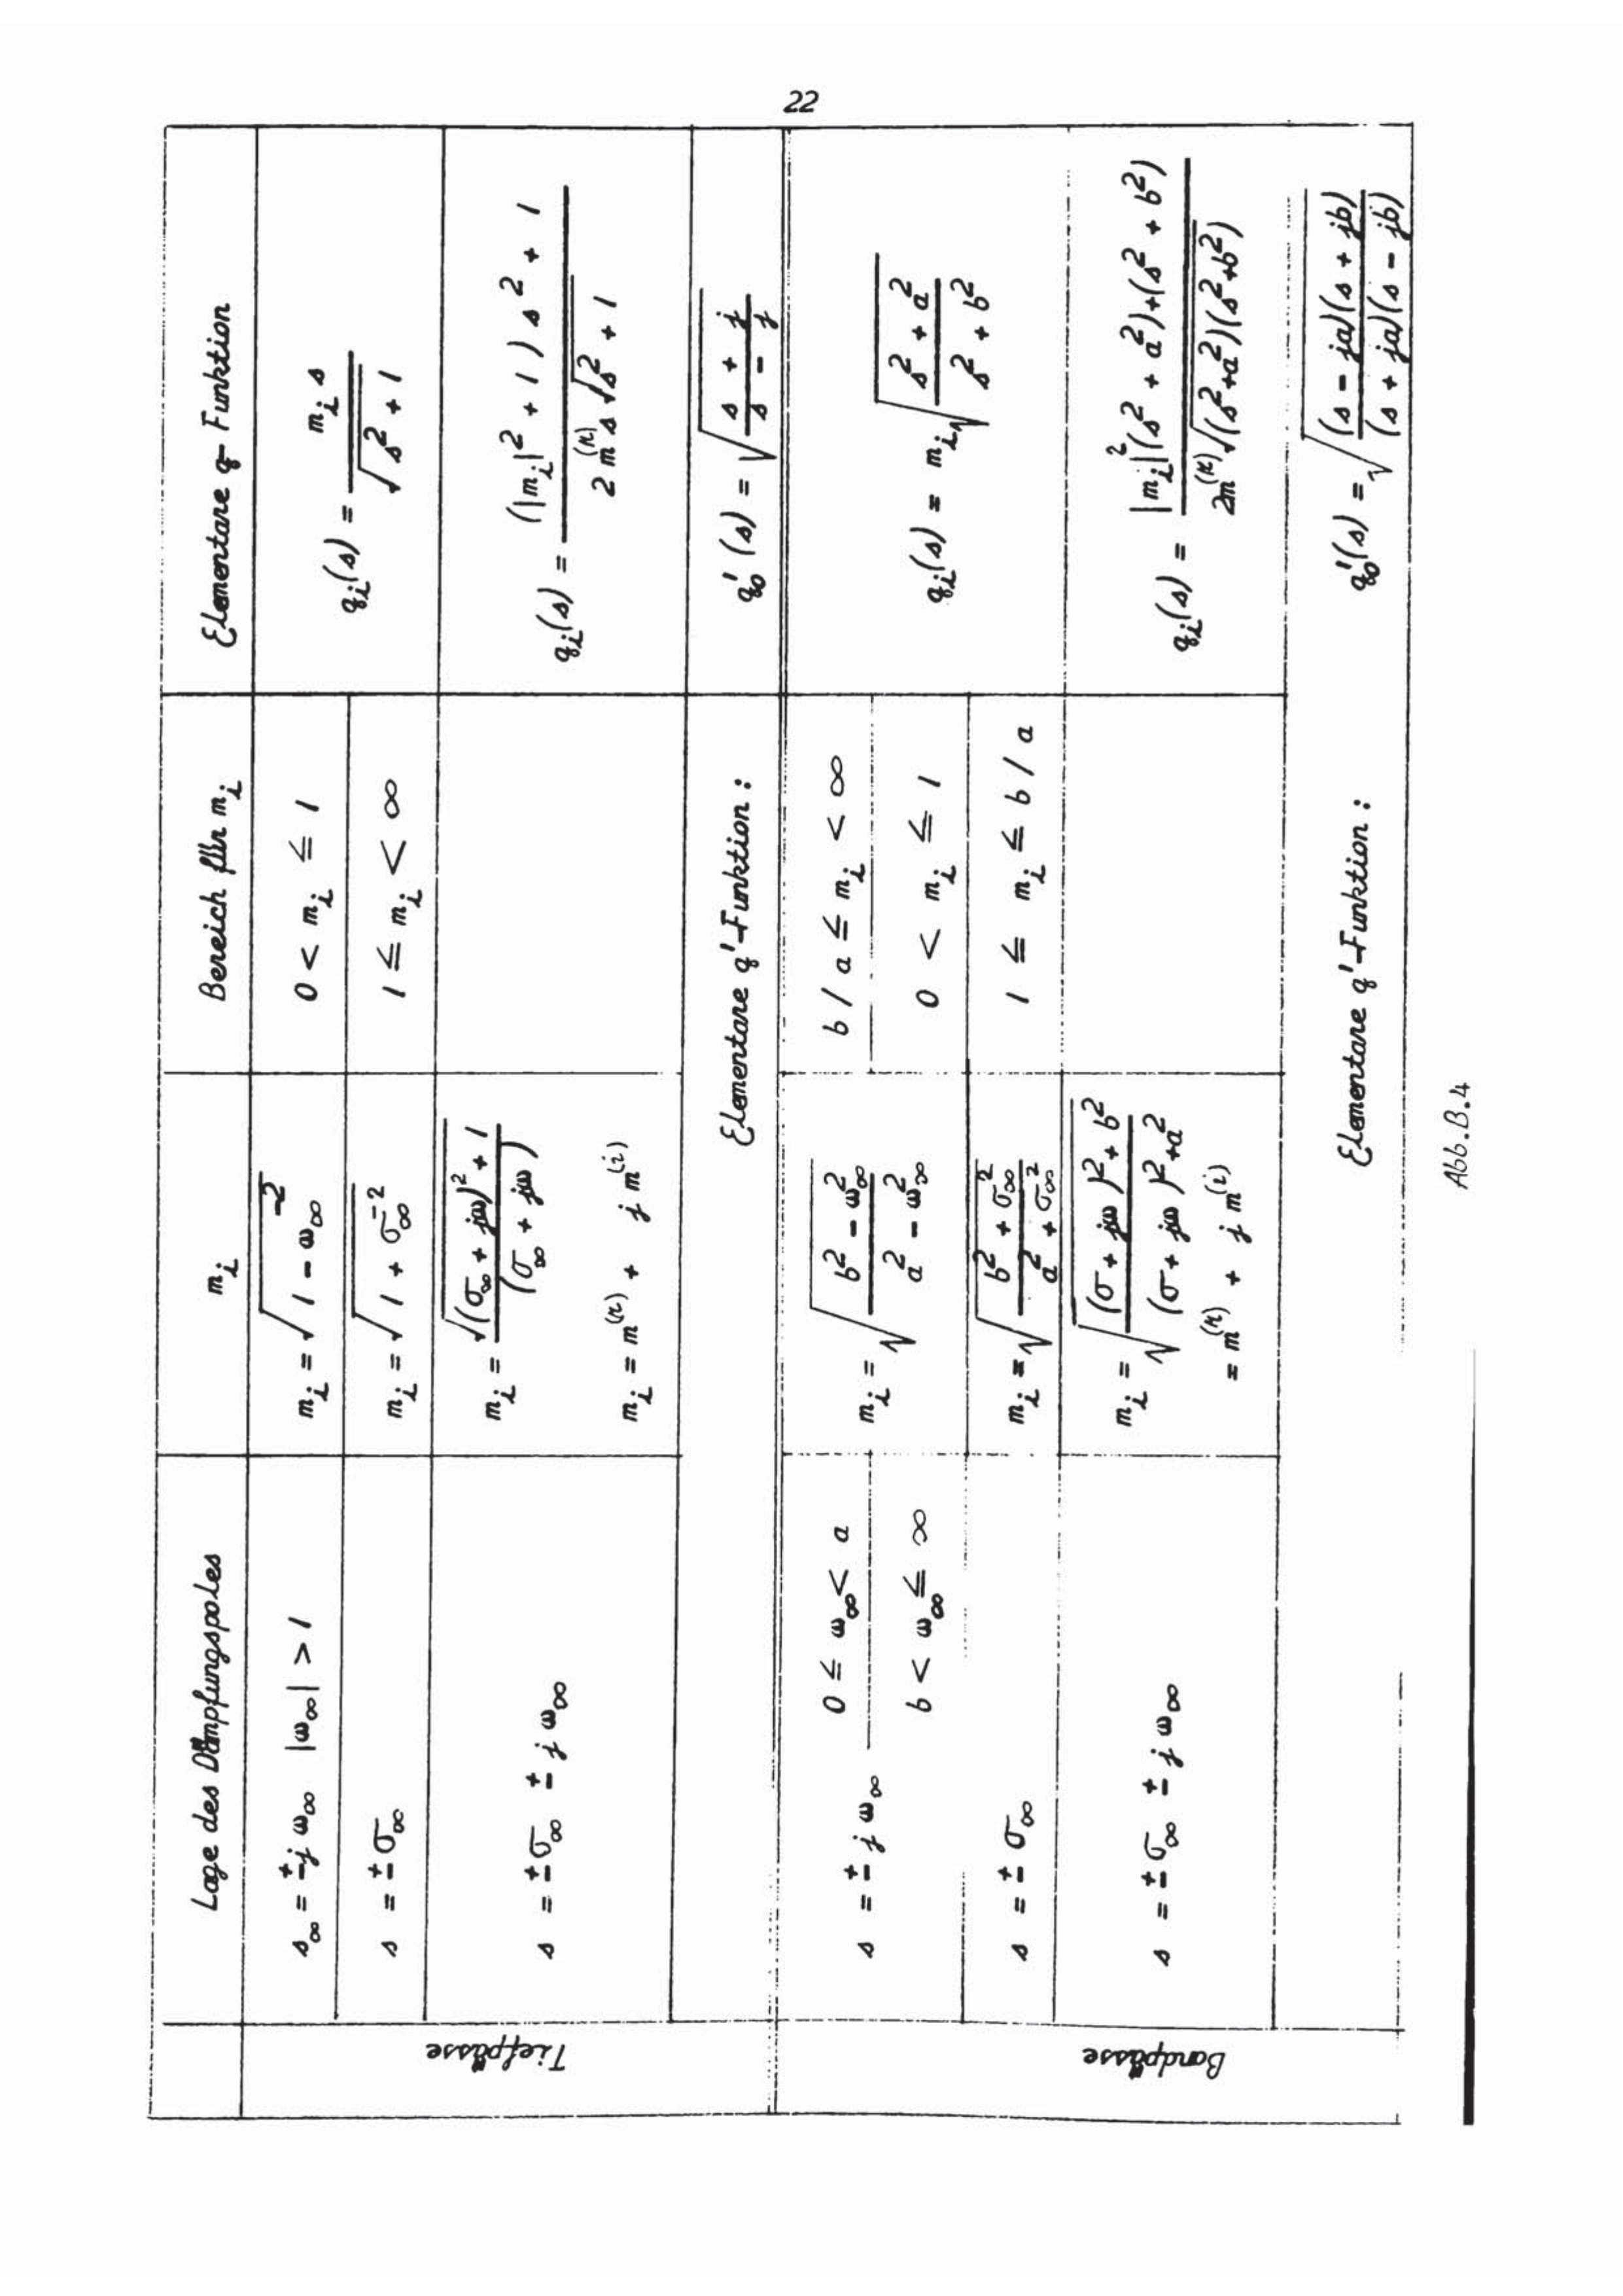 22
Lage des Dämpfungspoles    mᵢ    Bereich für mᵢ    Elementare q-Funktion
Tiefpässe
s∞ = ±jω∞  |ω∞| > 1    mᵢ = √(1 - ω∞⁻²)    0 < mᵢ ≤ 1    qᵢ(s) = mᵢ s / √(s² + 1)
s = ±σ∞    mᵢ = √(1 + σ∞⁻²)    1 ≤ mᵢ < ∞
s = ±σ∞ ± jω∞    mᵢ = √((σ∞ + jω)² + 1) / (σ∞ + jω)    qᵢ(s) = ((|mᵢ|² + 1) s² + 1) / (2 m⁽ʳ⁾ s √(s² + 1))
mᵢ = m⁽ʳ⁾ + j m⁽ⁱ⁾
Elementare q'-Funktion :    q₀'(s) = √((s + j) / (s - j))
Bandpässe
s = ±jω∞    0 ≤ ω∞ < a    mᵢ = √((b² - ω∞²) / (a² - ω∞²))    b / a ≤ mᵢ < ∞    qᵢ(s) = mᵢ √((s² + a²) / (s² + b²))
b < ω∞ ≤ ∞    0 < mᵢ ≤ 1
s = ±σ∞    mᵢ = √((b² + σ∞²) / (a² + σ∞²))    1 ≤ mᵢ ≤ b / a
s = ±σ∞ ± jω∞    mᵢ = √(((σ + jω)² + b²) / ((σ + jω)² + a²))    qᵢ(s) = (|mᵢ|²(s² + a²) + (s² + b²)) / (2m⁽ʳ⁾ √((s² + a²)(s² + b²)))
= m⁽ʳ⁾ + j m⁽ⁱ⁾
Elementare q'-Funktion :    q₀'(s) = √((s - ja)(s + jb) / (s + ja)(s - jb))
Abb.B.4